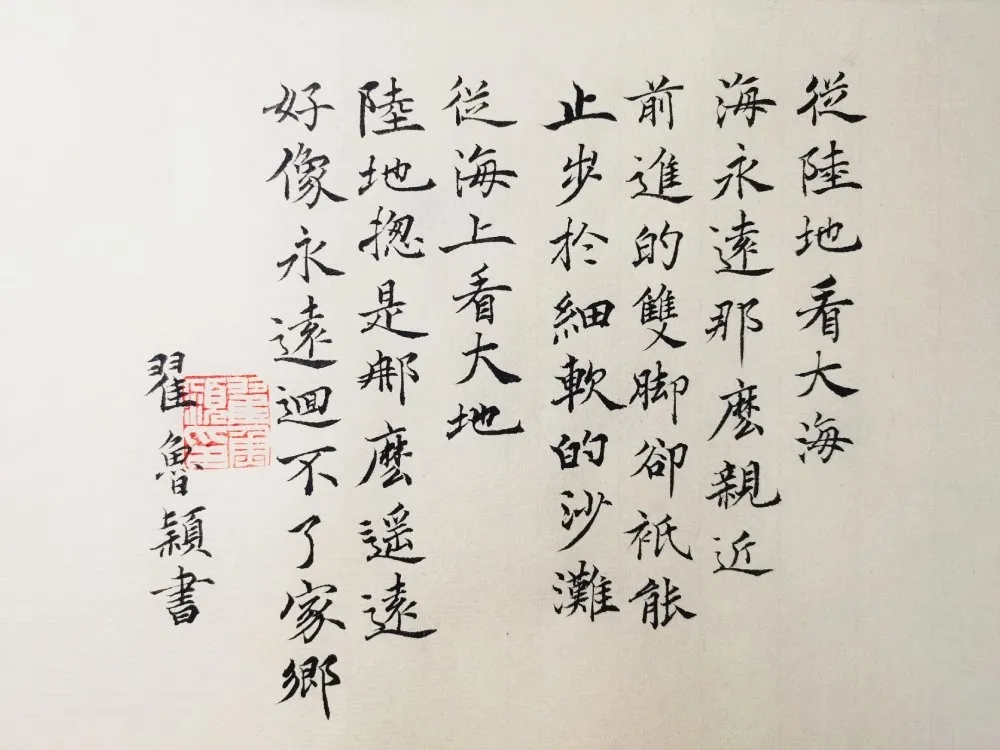 從陸地看大海
海永遠那麽親近
前進的雙脚卻衹能
止步於細軟的沙灘
從海上看大地
陸地揔是那麽遥遠
好像永遠迴不了家鄉
翟魯穎書